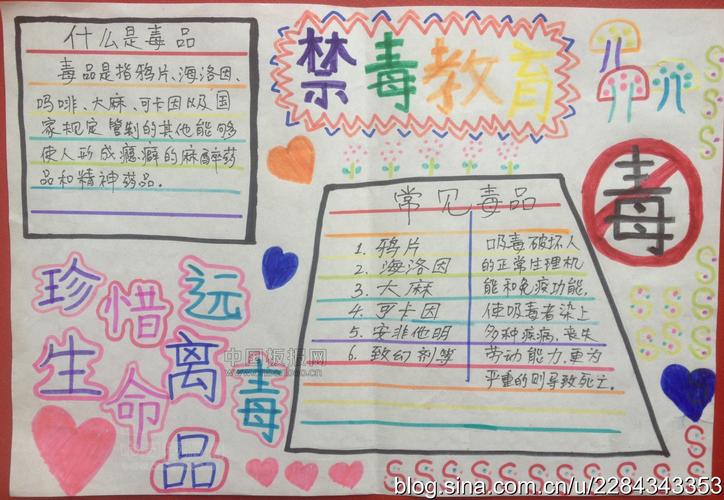 什么是毒品
毒品是指鸦片、海洛因、
吗啡、大麻、可卡因以及国
家规定管制的其他能够
使人形成瘾癖的麻醉药
品和精神药品。
禁毒教育
毒
常见毒品
1. 鸦片
2. 海洛因
3. 大麻
4. 可卡因
5. 安非他明
6. 致幻剂等
吸毒破坏人
的正常生理机
能和免疫功能,
使吸毒者染上
多种疾病,丧失
劳动能力,更为
严重的则导致死亡.
珍惜
生命
远离
毒品
中国板报网
blog.sina.com.cn/u/2284343353